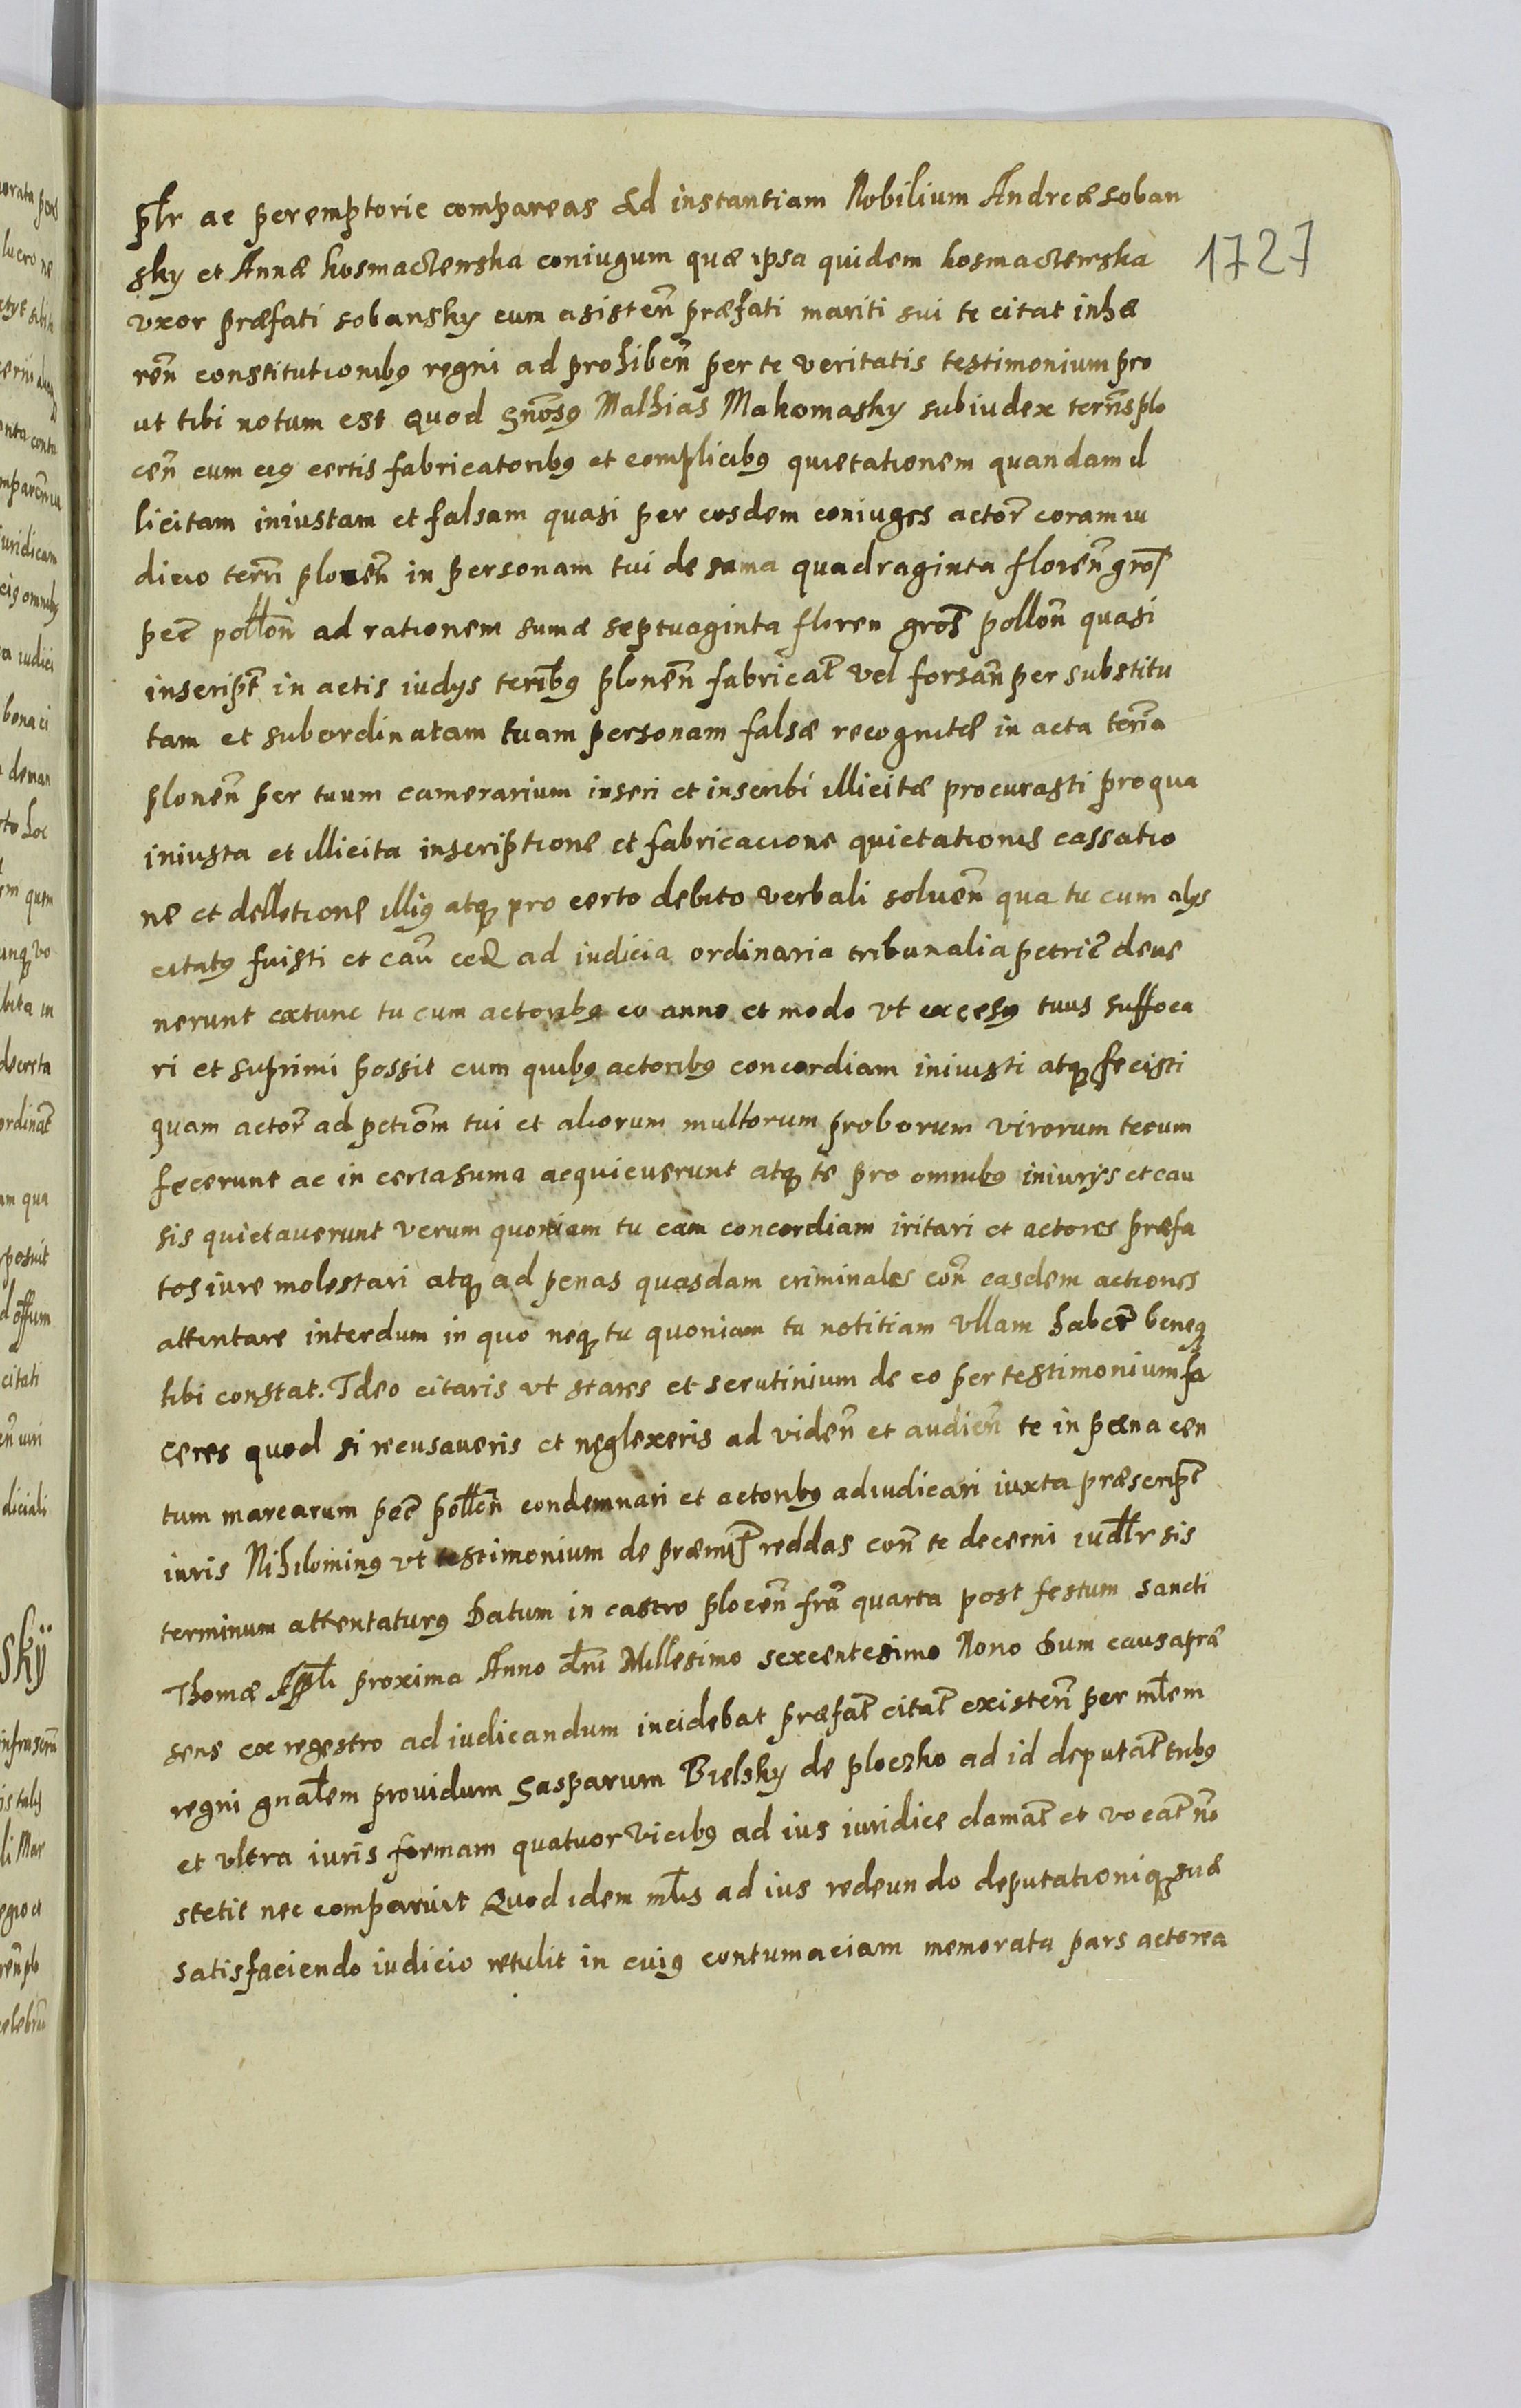 pl̃r ac peremptorie compareas Ad instantiam Nobilium Andreæ soban
sky et Annæ kosmaczewska coniugum quæ ipsa quidem kosmaczewska
1727
vxor præfati sobansky cum asisten̄ præfati mariti sui te citat inhæ
ren̄ constitutionibꝰ regni ad prohiben̄ per te veritatis testimonium pro
ut tibi notum est quod Gn̄osꝰ Mathias Makomasky subiudex terr̄is plo
cen̄ cum eiꝰ certis fabricatoribꝰ et complicibꝰ quietationem quandam il
licitam iniustam et falsam quasi per eosdem coniuges actor̄ coram iu
dicio terr̄i plonen̄ in personam tui de sama quadraginta floren̄ gros̄
pec̄ pollon̄ ad rationem sumæ septuaginta floren gros̄ pollon̄ quasi
inscript̄ in actis iudys ter̄ribꝰ plonen̄ fabricat̄ vel forsan̄ per substitu
tam et subordinatam tuam personam falsæ recognitæ in acta terr̄a
plonen̄ per tuum camerarium inseri et inscribi illicitæ procurasti pro qua
iniusta et illicita inscriptione et fabricacione quietationis cassatio
ne et delletione illiꝰ atqꝫ pro certo debito verbali soluen̄ qua tu cum alys
citatꝰ fuisti et cau̅ ad iudicia ordinaria tribunalia petric̄ deue
nerunt extunc tu cum actoribꝰ eo anno et modo vt excesꝰ tuus suffoca
ri et suprimi possit cum quibꝰ actoribꝰ concordiam iniusti atqꝫ fecisti
quam actor̄ ad petiom̄ tui et aliorum multorum proborum virorum tecum
fecerunt ac in certa suma acquieuerunt atqꝫ te pro omnibꝰ iniurys et cau
sis quietauerunt verum quoniam tu eam concordiam iritari et actores præfa
tos iure molestari atqꝫ ad penas quasdam criminales con̄ easdem actiones
attentare interdum in quo neqꝫ tu quoniam tu notitiam vllam haber̄ beneqꝫ
tibi constat. Ideo citaris vt stares et scrutinium de eo per testimonium fa
ceres quod si recusaueris et neglexeris ad viden̄ et audien̄ te in pæna cen
tum marcarum pec̄ pollon̄ condemnari et actoribꝰ adiudicari iuxta præscript̄
iuris Nihilominꝰ vt testimonium de præmis̄ reddas con̄ te decerni iudl̃r sis
terminum attentaturꝰ Datum in castro plocen̄ fr̄a quarta post festum sancti
Thomæ Apl̃i proxima Anno dn̄i Millesimo sexcentesimo Nono Dum causa præ
sens ex regestro ad iudicandum incidebat præfat̄ citat̄ existen̄ per ml̃em
regni gnal̃em prouidum Gasparum Bielsky de ploczko ad id deputat̄ tribꝰ
et vltra iuris formam quatuor vicibꝰ ad ius iuridice clamat̄ et vocat̄ no̅
stetit nec comparuit Quod idem ml̃is ad ius redeundo deputationiqꝫ suæ
satisfaciendo iudicio retulit in cuiꝰ contumaciam memorata pars actorea